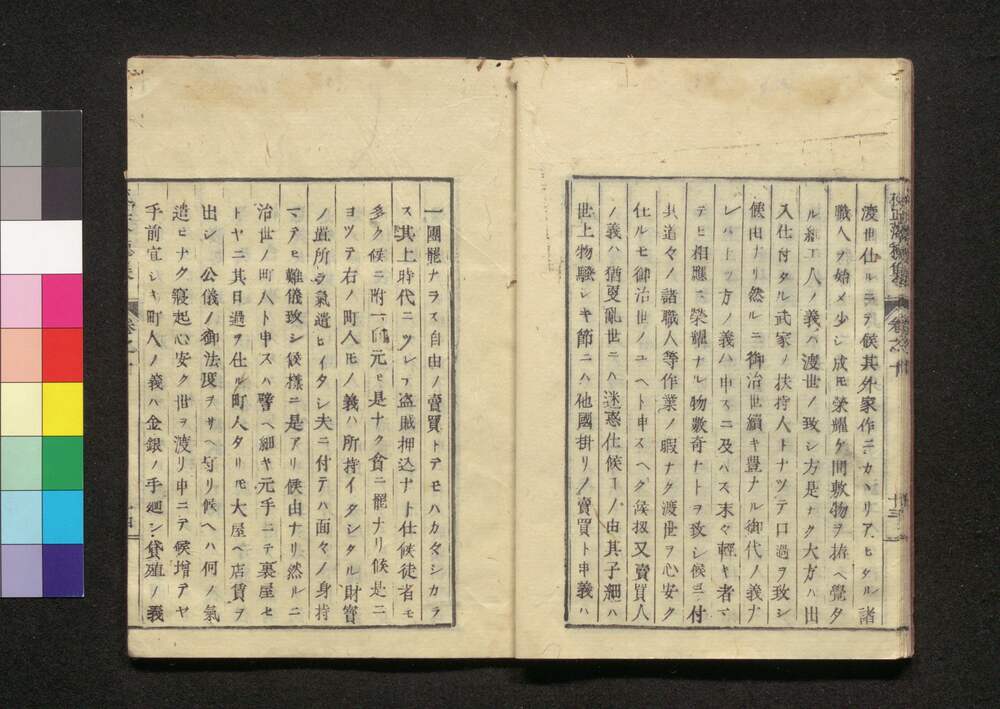 渡世仕ルニテ候其外家作ニカヽリアヒタル諸
職人ヲ始メ少シ成モ榮耀ケ間敷物ヲ拵ヘ覺タ
ル細工人ノ義ハ渡世ノ致シ方是ナク大方ハ出
入仕付タル武家ノ扶持人トナツテ口過ヲ致シ
候由ナリ然ルニ御治世續キ豊ナル御代ノ義ナ
レハ上ツ方ノ義ハ申スニ及ハス末々輕キ者マ
テモ相應ニ榮耀ナル物數奇ナトヲ致シ候ニ付
其道々ノ諸職人等作業ノ暇ナク渡世ヲ心安ク
仕ルモ御治世ノユヘト申スヘク候扨又賣買人
ノ義ハ猶更亂世ニハ迷惑仕候ヿノ由其子細ハ
世上物騒シキ節ニハ他國掛リノ賣買ト申義ハ
一圓罷ナラス自由ノ賣買トテモハカタシカラ
ス其上時代ニツレテ盗賊押込ナト仕候徒者モ
多ク候ニ附一向元モ是ナク貪ニ罷ナリ候是ニ
ヨツテ右ノ町人モノ義ハ所持イタシタル財寳
ノ置所ヲ氣遣ヒイタシ夫ニ付テハ面々ノ身持
マテモ難儀致シ候樣ニ是アリ候由ナリ然ルニ
治世ノ町人ト申スハ譬ヘ細キ元手ニテ裏屋セ
トヤニ其日過ヲ仕ル町人タリモ大屋ヘ店賃ヲ
出シ 公儀ノ御法度ヲサヘ守リ候ヘハ何ノ氣
遣ヒナク寝起心安ク世ヲ渡リ申ニテ候増テヤ
手前宜シキ町人ノ義ハ金銀ノ手廻シ貨殖ノ義